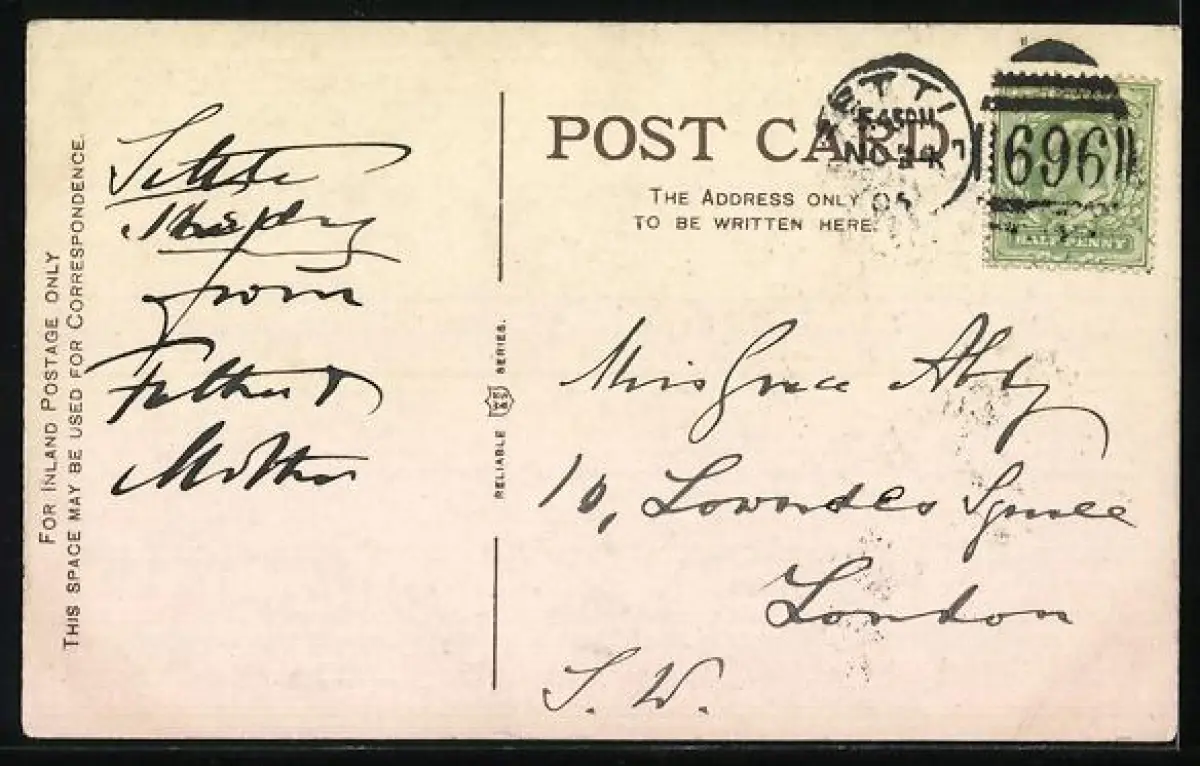 FOR INLAND POSTAGE ONLY
THIS SPACE MAY BE USED FOR CORRESPONDENCE.
Settle
from
Father &
Mother
RELIABLE SERIES.
POST CARD
THE ADDRESS ONLY
TO BE WRITTEN HERE.
ETT
5 45 PM
NO 24
05
696
HALFPENNY
Miss Grace
10, Lowndes Square
London
S. W.